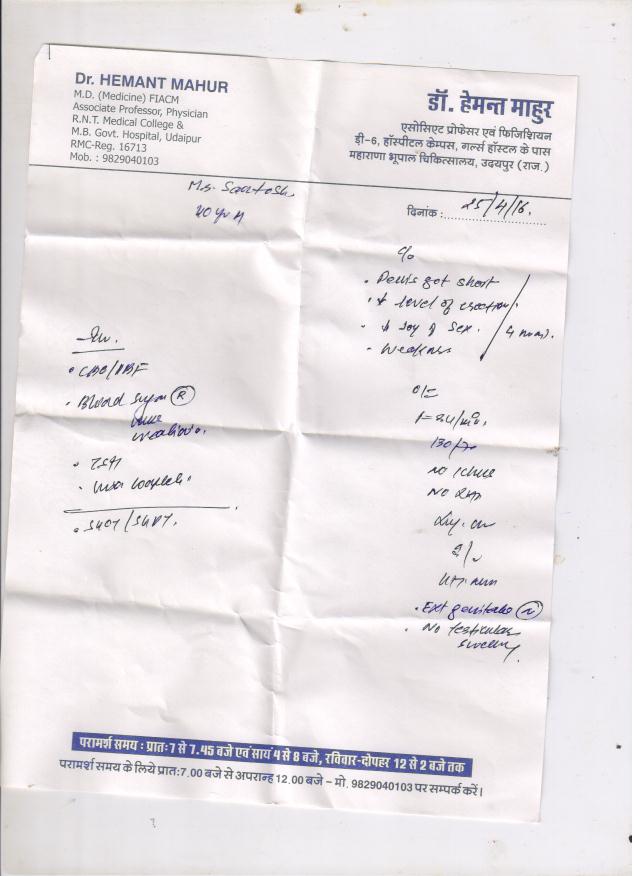 Dr. HEMANT MAHUR
M.D. (Medicine) FIACM
Associate Professor, Physician
R.N.T. Medical College &
M.B. Govt. Hospital, Udaipur
RMC-Reg. 16713
Mob. : 9829040103
डॉ. हेमन्त माहुर
एसोसिएट प्रोफेसर एवं फिजिशियन
डी-6, हॉस्पीटल केम्पस, गर्ल्स हॉस्टल के पास
महाराणा भूपाल चिकित्सालय, उदयपुर (राज.)
Santosh
40 yr M
दिनांक : 25/4/16.
c/o
• Penis got short
• ↓ level of erection
• ↓ joy of sex.
• Weakness
Inv.
• CBC/PBF
• Blood sugar (R)
• TSH
• Urine complete
• SGOT/SGPT.
O/E
P=84/min.
130/70
No icterus
No LAP
• Ext genitalia (N)
• No testicular
swelling
परामर्श समय : प्रातः7 से 7.45 बजे एवं सायं 4 से 8 बजे, रविवार-दोपहर 12 से 2 बजे तक
परामर्श समय के लिये प्रातः7.00 बजे से अपरान्ह 12.00 बजे - मो. 9829040103 पर सम्पर्क करें।